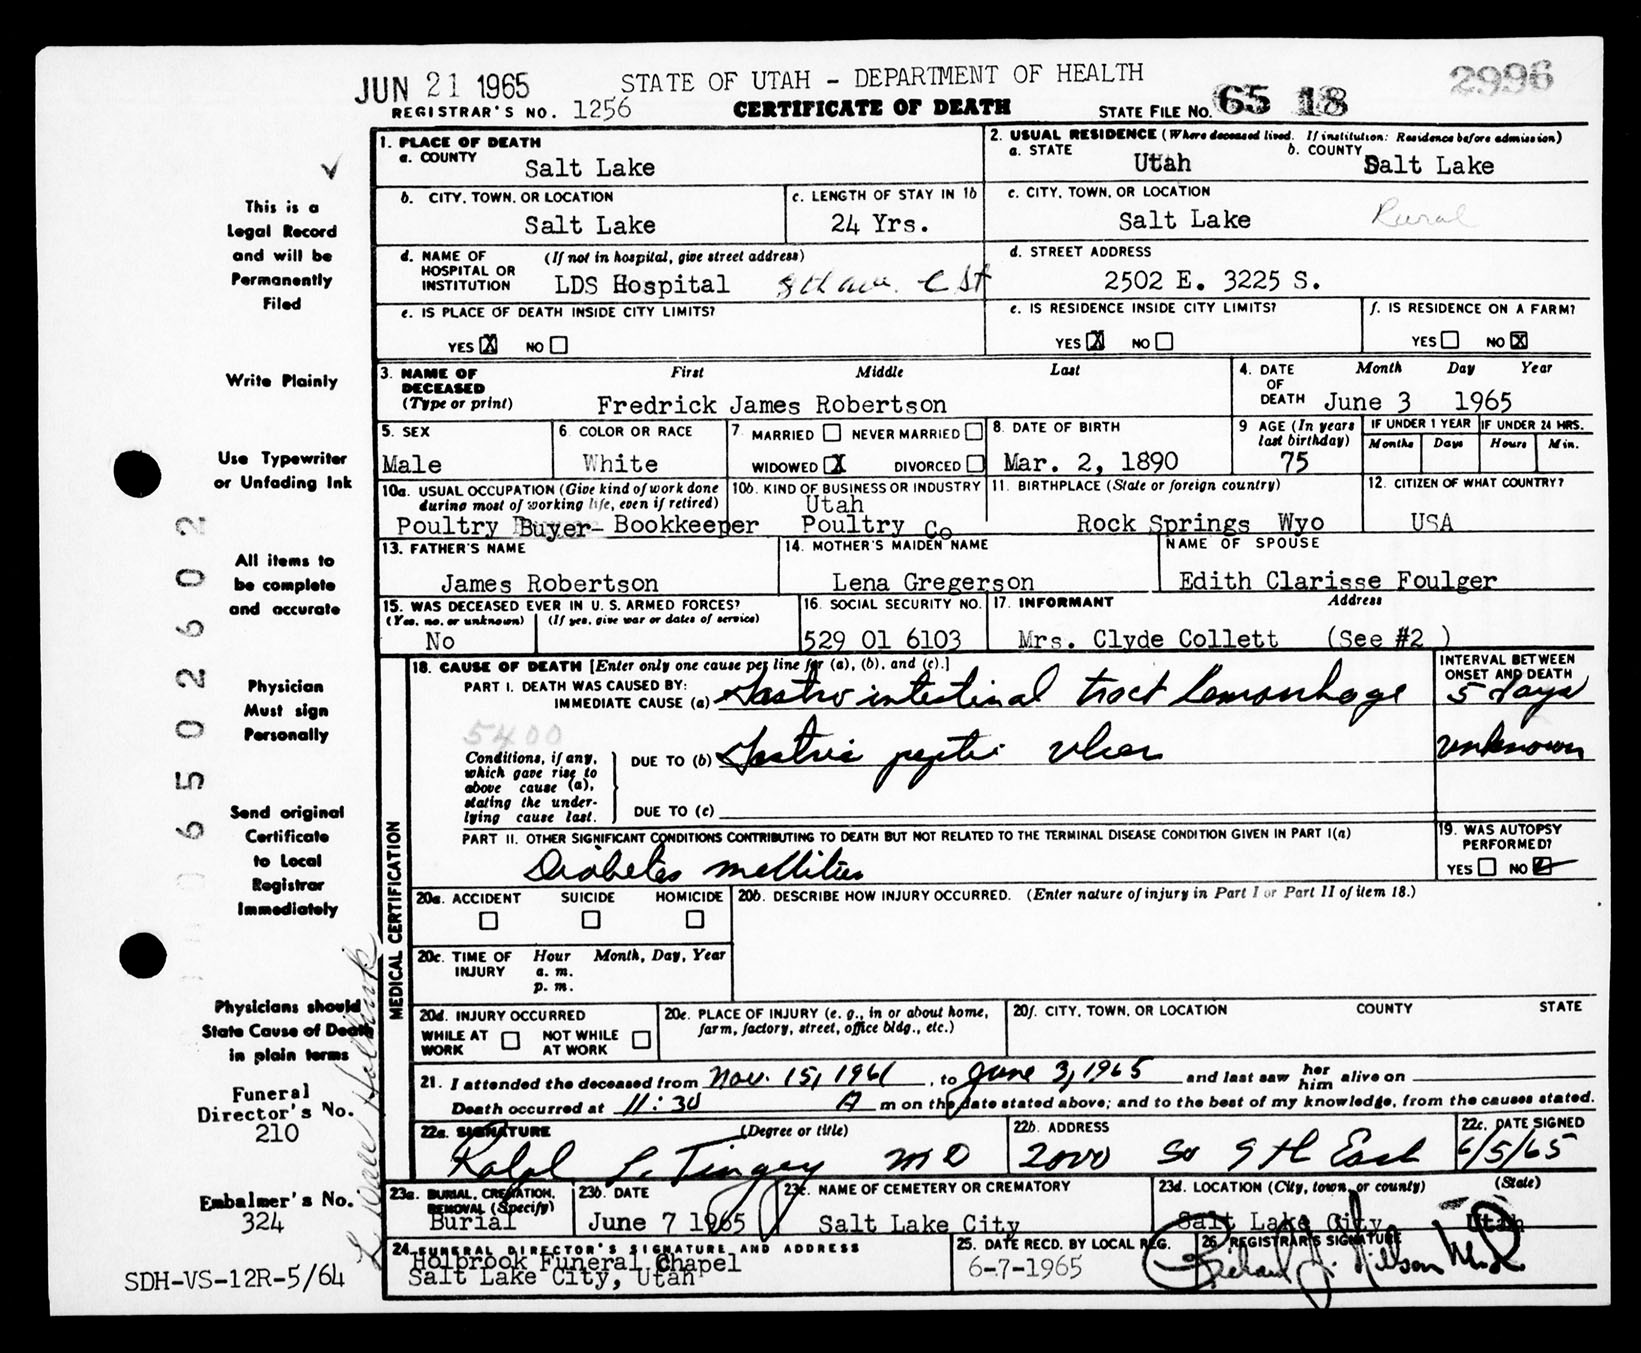 JUN 21 1965
STATE OF UTAH - DEPARTMENT OF HEALTH
2996
REGISTRAR'S NO. 1256
CERTIFICATE OF DEATH
STATE FILE NO. 65 18
1. PLACE OF DEATH
a. COUNTY
Salt Lake
2. USUAL RESIDENCE (Where deceased lived. If institution: Residence before admission)
a. STATE
Utah
b. COUNTY
Salt Lake
b. CITY, TOWN, OR LOCATION
Salt Lake
c. LENGTH OF STAY IN 1b
24 Yrs.
c. CITY, TOWN, OR LOCATION
Salt Lake
Rural
d. NAME OF HOSPITAL OR INSTITUTION
(If not in hospital, give street address)
LDS Hospital 8th ave. C St
d. STREET ADDRESS
2502 E. 3225 S.
e. IS PLACE OF DEATH INSIDE CITY LIMITS?
YES X NO
e. IS RESIDENCE INSIDE CITY LIMITS?
YES X NO
f. IS RESIDENCE ON A FARM?
YES NO X
3. NAME OF DECEASED (Type or print)
First Middle Last
Fredrick James Robertson
4. DATE OF DEATH
Month Day Year
June 3 1965
5. SEX
Male
6. COLOR OR RACE
White
7. MARRIED NEVER MARRIED
WIDOWED X DIVORCED
8. DATE OF BIRTH
Mar. 2, 1890
9 AGE (In years last birthday)
75
IF UNDER 1 YEAR
Months Days
IF UNDER 24 HRS.
Hours Min.
10a. USUAL OCCUPATION (Give kind of work done during most of working life, even if retired)
Poultry Buyer- Bookkeeper
10b. KIND OF BUSINESS OR INDUSTRY
Utah
Poultry Co
11. BIRTHPLACE (State or foreign country)
Rock Springs Wyo
12. CITIZEN OF WHAT COUNTRY?
USA
13. FATHER'S NAME
James Robertson
14. MOTHER'S MAIDEN NAME
Lena Gregerson
NAME OF SPOUSE
Edith Clarisse Foulger
15. WAS DECEASED EVER IN U. S. ARMED FORCES?
(Yes, no, or unknown) (If yes, give war or dates of service)
No
16. SOCIAL SECURITY NO.
529 01 6103
17. INFORMANT Address
Mrs. Clyde Collett (See #2 )
MEDICAL CERTIFICATION
18. CAUSE OF DEATH [Enter only one cause per line for (a), (b), and (c).]
PART I. DEATH WAS CAUSED BY:
IMMEDIATE CAUSE (a) Gastro intestinal tract hemorrhage
INTERVAL BETWEEN ONSET AND DEATH
5 days
5400
Conditions, if any, which gave rise to above cause (a), stating the underlying cause last.
DUE TO (b) Gastric peptic ulcer
unknown
DUE TO (c)
PART II. OTHER SIGNIFICANT CONDITIONS CONTRIBUTING TO DEATH BUT NOT RELATED TO THE TERMINAL DISEASE CONDITION GIVEN IN PART I(a)
Diabetes mellitus
19. WAS AUTOPSY PERFORMED?
YES NO
20a. ACCIDENT SUICIDE HOMICIDE
20b. DESCRIBE HOW INJURY OCCURRED. (Enter nature of injury in Part I or Part II of item 18.)
20c. TIME OF INJURY
Hour Month, Day, Year
a. m.
p. m.
20d. INJURY OCCURRED
WHILE AT WORK NOT WHILE AT WORK
20e. PLACE OF INJURY (e. g., in or about home, farm, factory, street, office bldg., etc.)
20f. CITY, TOWN, OR LOCATION COUNTY STATE
21. I attended the deceased from Nov. 15, 1961, to June 3, 1965 and last saw her him alive on
Death occurred at 11:30 A m on the date stated above; and to the best of my knowledge, from the causes stated.
22a. SIGNATURE (Degree or title)
Ralph L. Tingey MD
22b. ADDRESS
2000 So 9th East
22c. DATE SIGNED
6/5/65
23a. BURIAL, CREMATION, REMOVAL (Specify)
Burial
23b. DATE
June 7 1965
23c. NAME OF CEMETERY OR CREMATORY
Salt Lake City
23d. LOCATION (City, town, or county) (State)
Salt Lake City Utah
24. FUNERAL DIRECTOR'S SIGNATURE AND ADDRESS
Holbrook Funeral Chapel
Salt Lake City, Utah
25. DATE RECD. BY LOCAL REG.
6-7-1965
26. REGISTRAR'S SIGNATURE
Richard J. Nilson M.D.
This is a
Legal Record
and will be
Permanently
Filed
Write Plainly
Use Typewriter
or Unfading Ink
All items to
be complete
and accurate
Physician
Must sign
Personally
Send original
Certificate
to Local
Registrar
Immediately
Physicians should
State Cause of Death
in plain terms
Funeral
Director's No.
210
Embalmer's No.
324
SDH-VS-12R-5/64
06502602
Holbrook